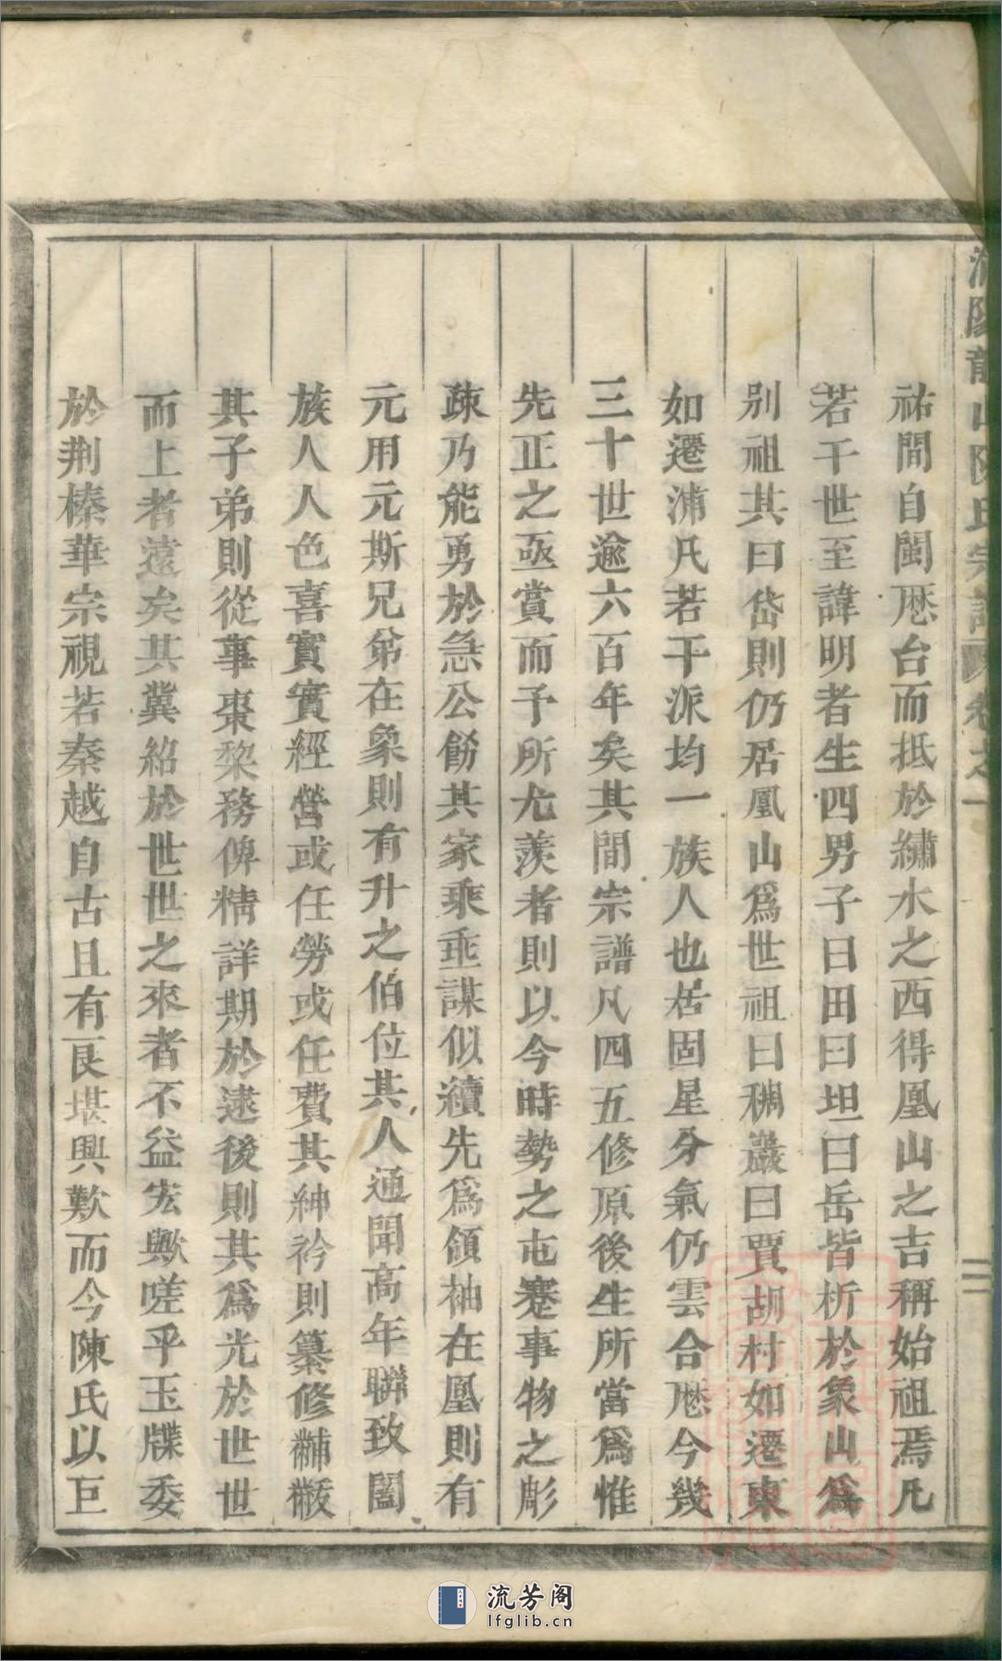 祐間自閩厯台而抵於繡水之西得凰山之吉稱始祖焉凡
若干世至諱明者生四男子曰田曰坦曰岳皆析於象山爲
别祖其曰岱則仍居凰山爲世祖曰稠巖曰賈胡村如遷東
如遷浦凡若干派均一族人也居固星分氣仍雲合厯今幾
三十世逾六百年矣其間宗譜凡四五修原後生所當爲惟
先正之亟賞而予所尤羨者則以今時勢之屯蹇事物之彫
疎乃能勇於急公飭其家乘乖謀似續先爲領袖在凰則有
元用元斯兄弟在象則有升之伯位其人通聞高年聯致闔
族人人色喜實實經營或任勞或任費其紳衿則纂修黼黻
其子弟則從事棗棃務俾精詳期於逮後則其爲光於世世
而上者遠矣其冀紹於世世之來者不益宏歟嗟乎玉牒委
於荆榛華宗視若秦越自古且有艮堪興歎而今陳氏以巨
龍山陳氏宗譜 卷之一
三
流芳阁
lfglib.cn